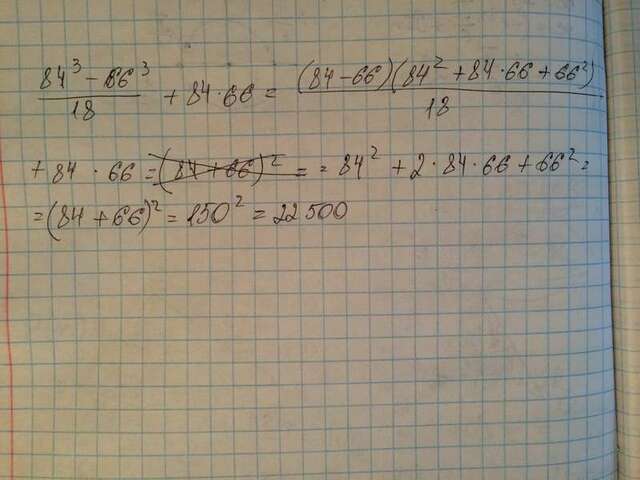 84³ - 66³ / 18 + 84 · 66 = (84 - 66)(84² + 84 · 66 + 66²) / 18
+ 84 · 66 = (84 + 66)² = = 84² + 2 · 84 · 66 + 66² =
= (84 + 66)² = 150² = 22500